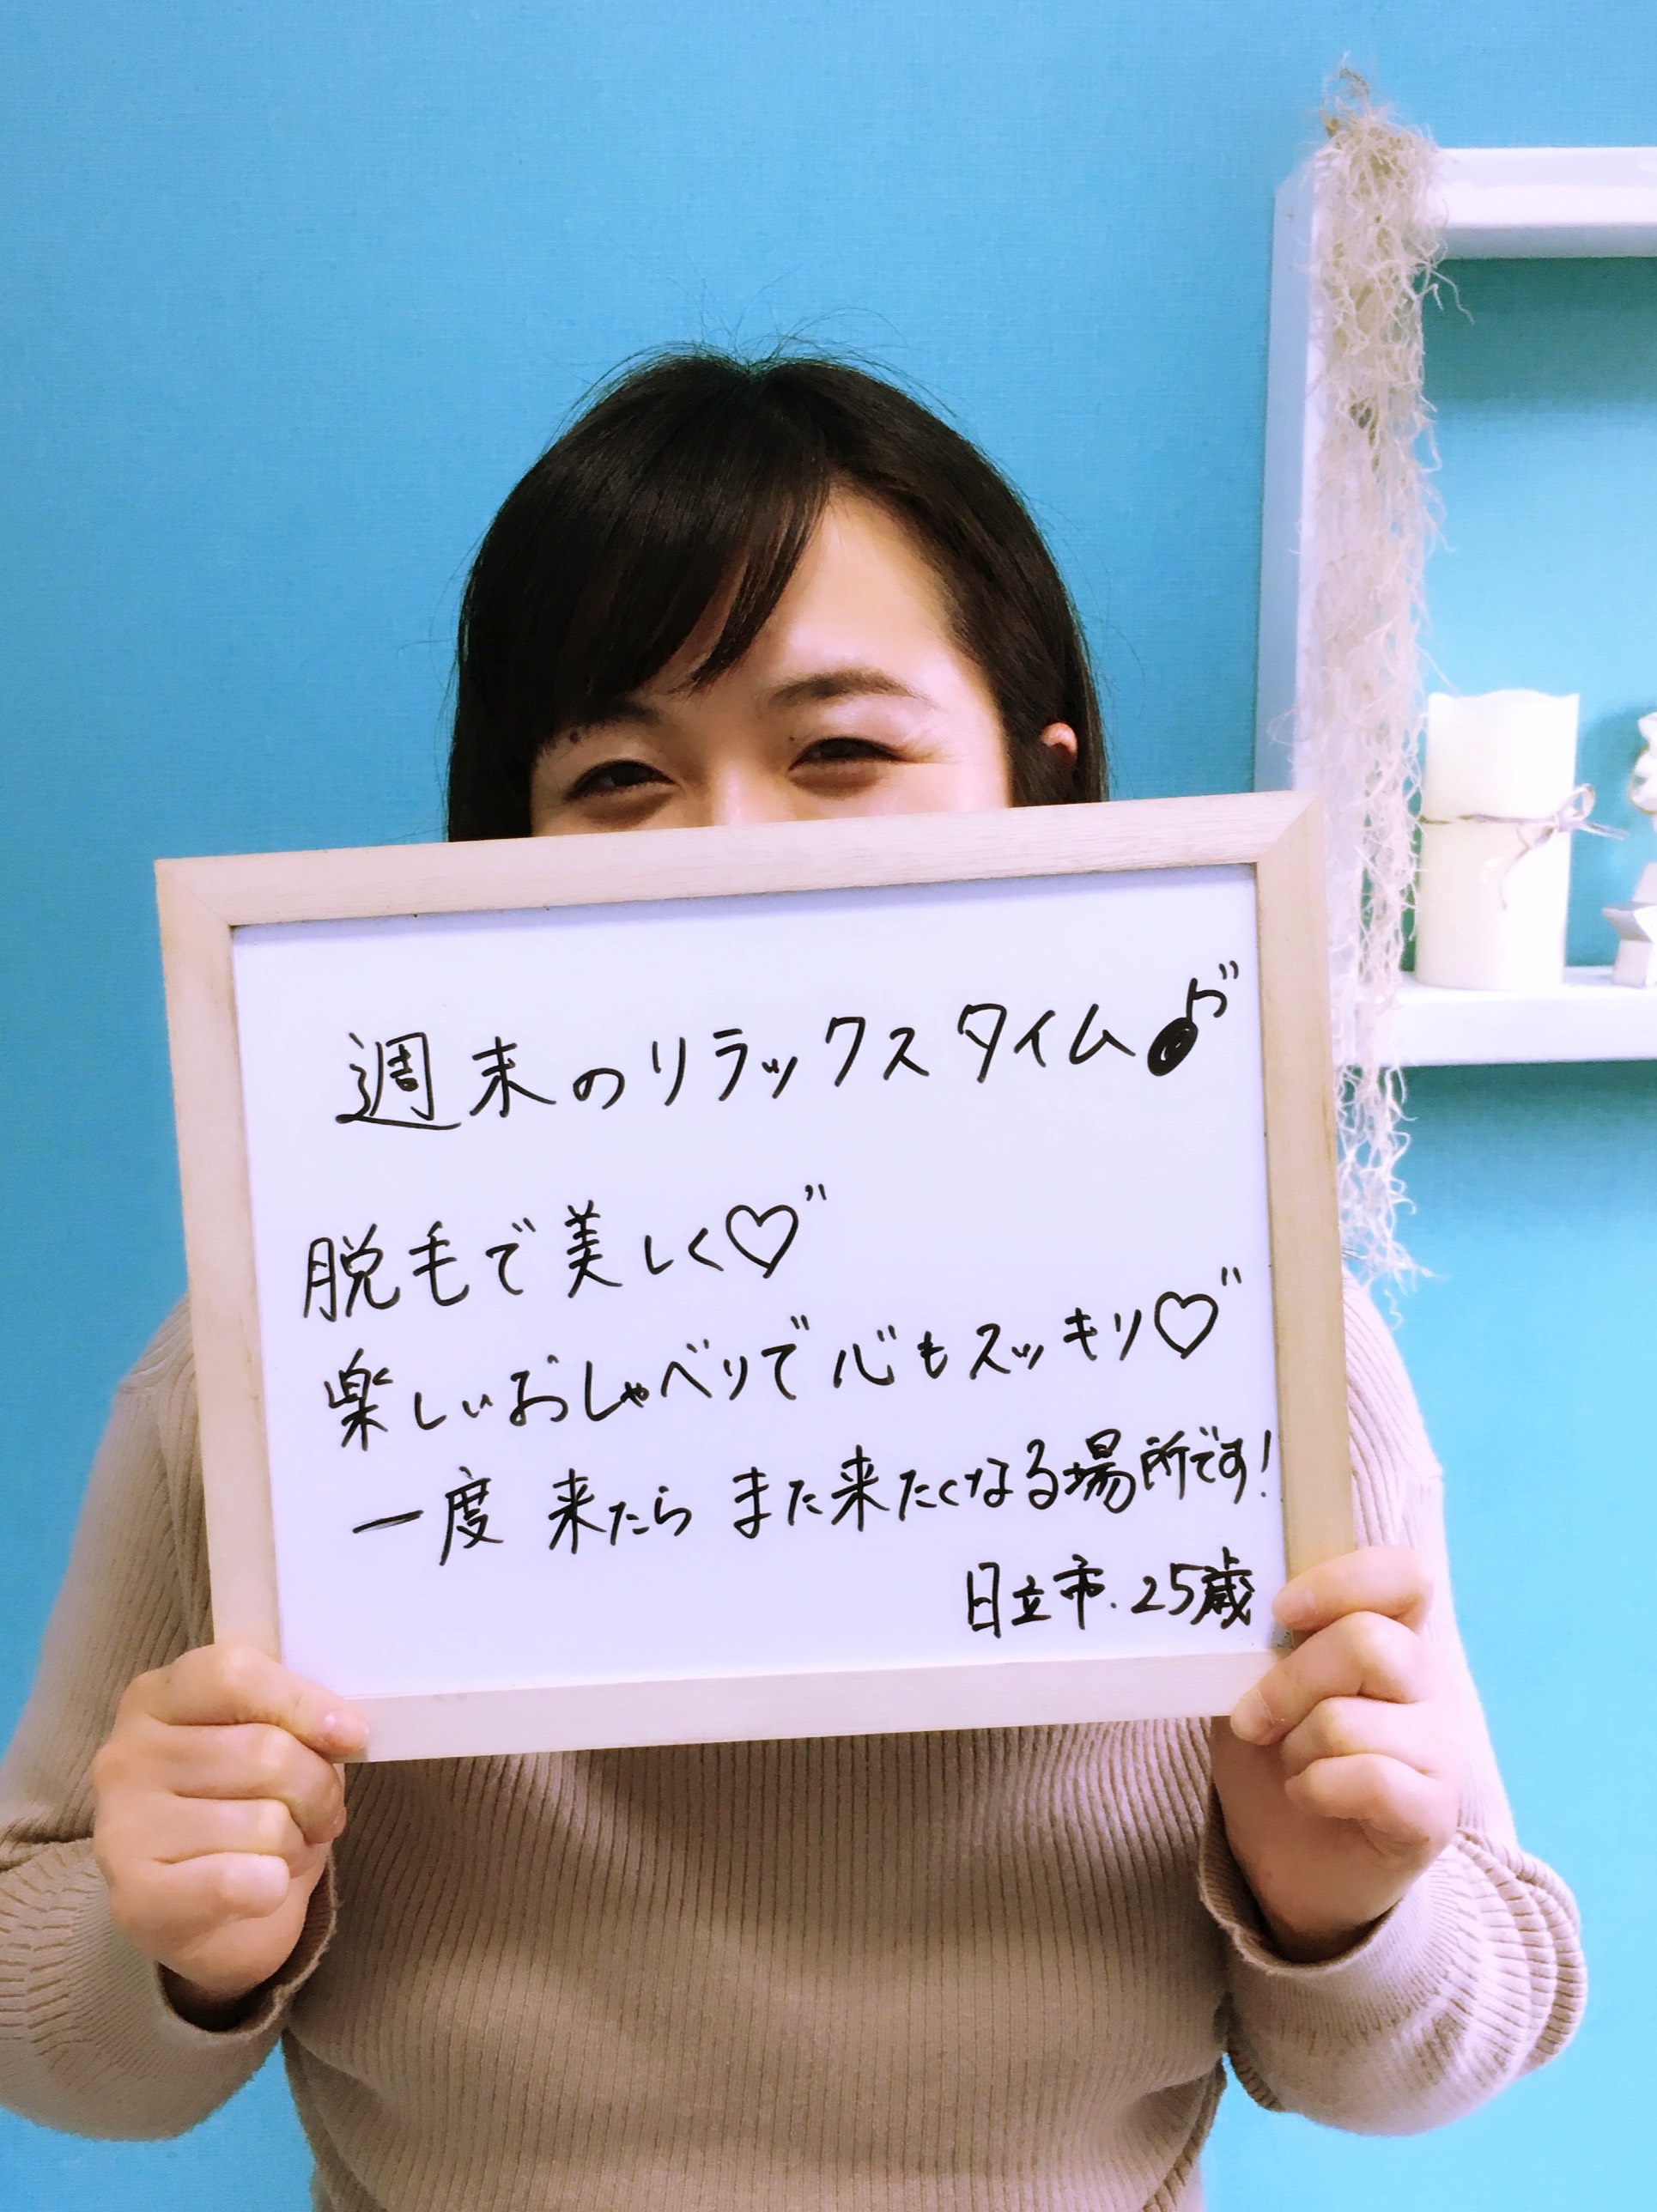 週末のリラックスタイム♪
脱毛で美しく♡
楽しいおしゃべりで心もスッキリ♡
一度来たらまた来たくなる場所です!
日立市.25歳